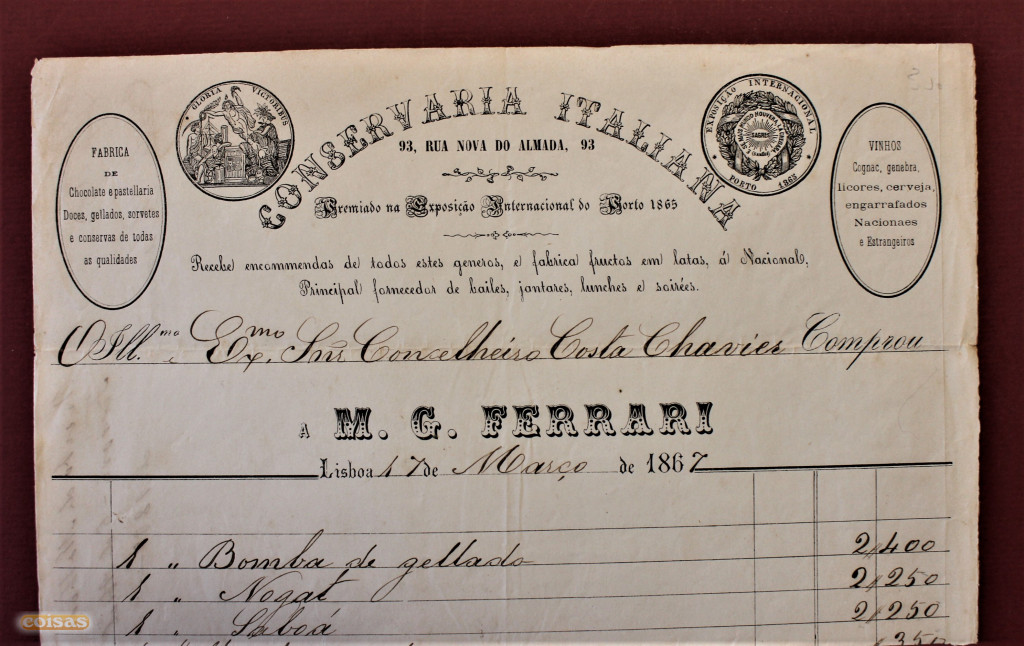 GLORIA VICTORIBUS
CONSERVARIA ITALIANA
93, RUA NOVA DO ALMADA, 93
Premiado na Exposição Internacional do Porto 1865
EXPOSIÇÃO INTERNACIONAL
PORTO 1865
FABRICA
DE
Chocolate e pastellaria
Doces, gellados, sorvetes
e conservas de todas
as qualidades
VINHOS
Cognac, genebra,
licores, cerveja,
engarrafados
Nacionaes
e Estrangeiros
Recebe encommendas de todos estes generos, e fabrica fructos em latas, á Nacional,
Principal fornecedor de bailes, jantares, lunches e soirées.
O Ill.mo e Ex.mo Snr. Conselheiro Costa Chavier Comprou
A M. G. FERRARI
Lisboa 17 de Março de 1867
1 „ Bomba de gellado 2,400
1 „ Nogat 2,250
1 „ Saboá 2,250
350
coisas